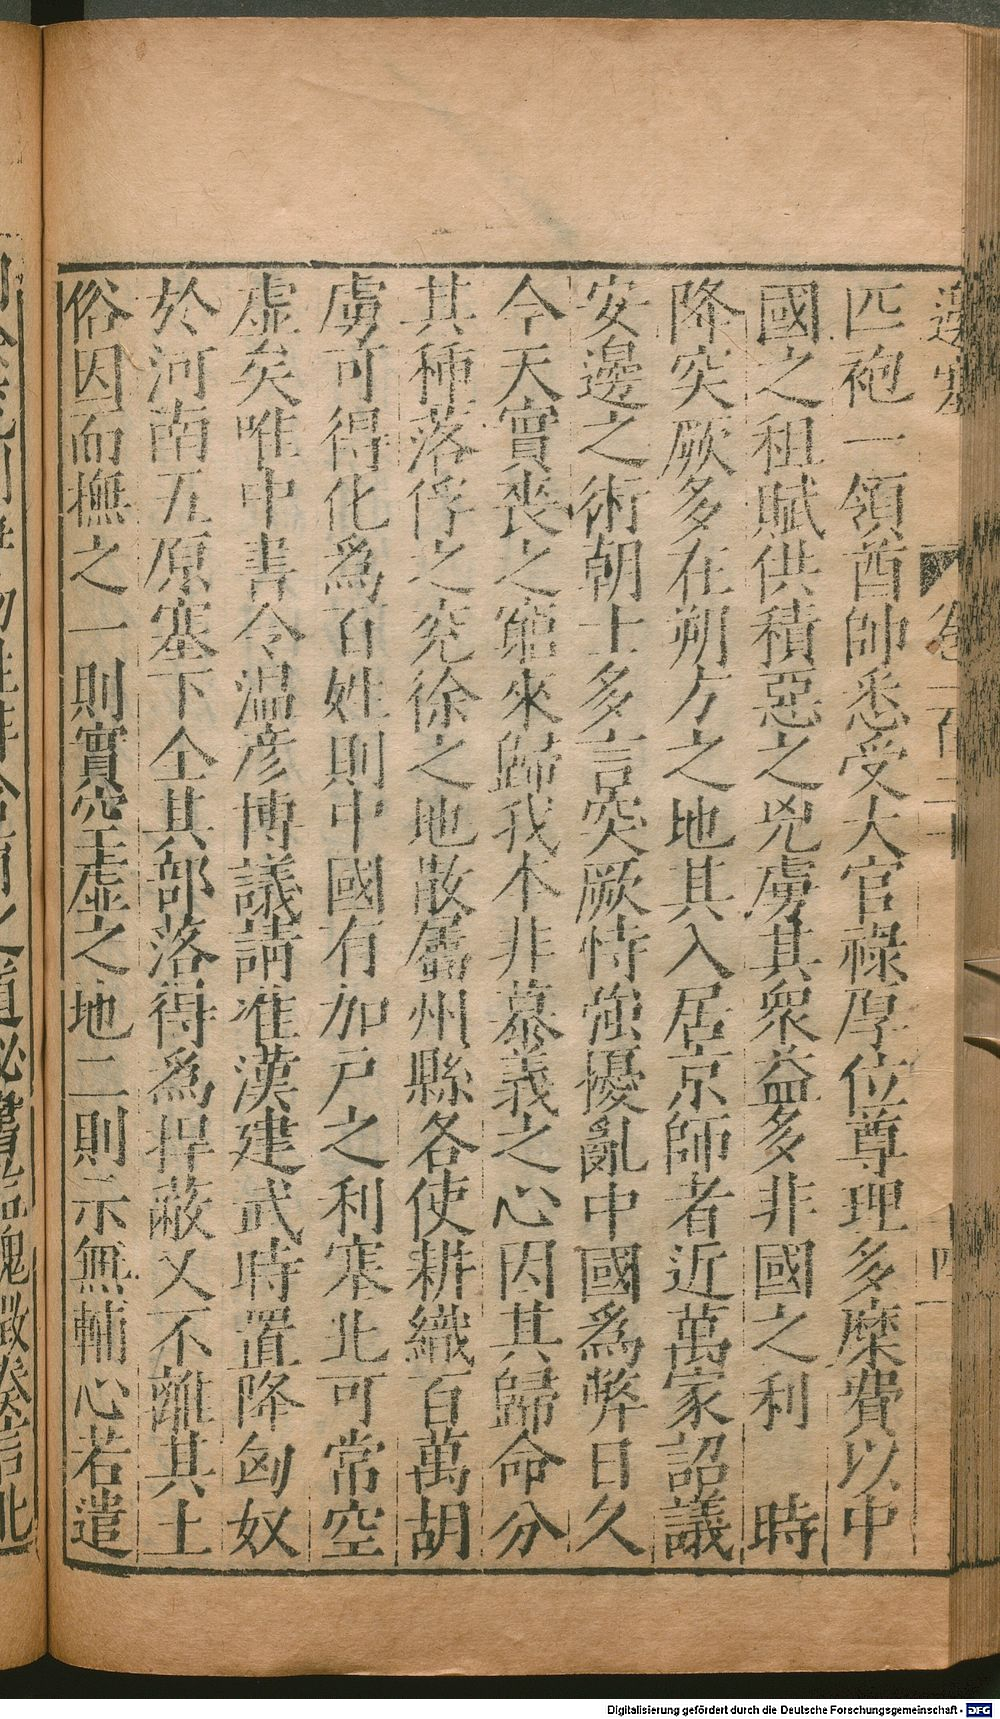 匹袍一領酋帥悉受大官祿厚位尊理多糜費以中
國之租賦供積惡之兇虜其衆益多非國之利 時
降突厥多在朔方之地其入居京師者近萬家詔議
安邊之術朝士多言突厥恃強擾亂中國爲弊日久
今天實喪之窮來歸我本非慕義之心因其歸命分
其種落俘之兖徐之地散屬州縣各使耕織百萬胡
虜可得化爲百姓則中國有加戶之利塞北可常空
虛矣唯中書令温彦博議請准漢建武時置降匈奴
於河南五原塞下全其部落得爲捍蔽又不離其土
俗因而撫之一則實空虛之地二則示無輔心若遣
Digitalisierung gefördert durch die Deutsche Forschungsgemeinschaft - DFG